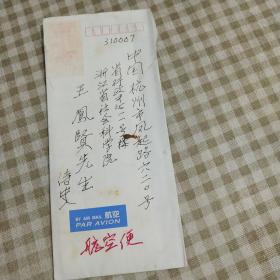 310007
中国杭州市凤起路六二〇号
省行政中心二号楼
浙江省社会科学院
王鳳賢先生
BY AIR MAIL 航空
PAR AVION
航空便